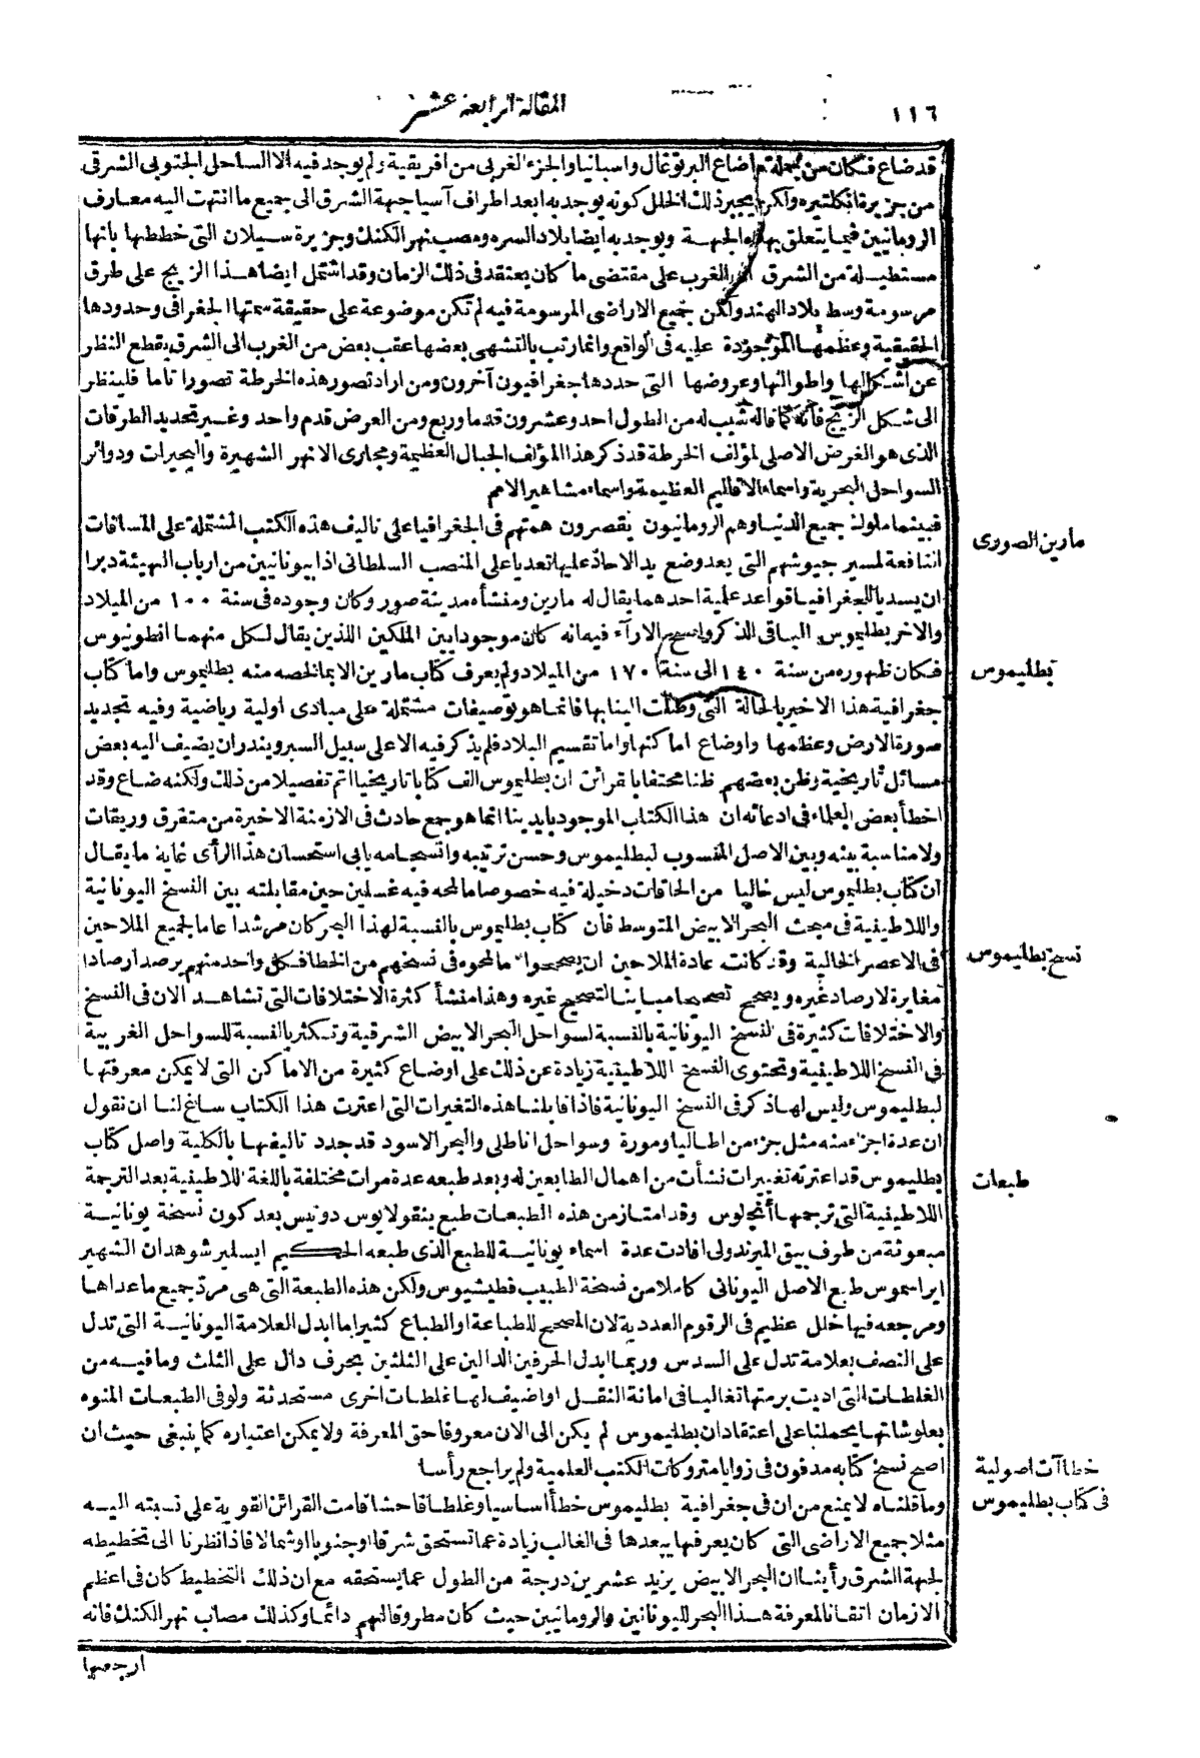 ١١٦
المقالة الرابعة عشر
قد ضاع فكان من جملة ما ضاع البرتوغال واسبانيا والجزء الغربى من افريقية ولم يوجد فيه الا الساحلى الجنوبى الشرقى
من جزيرة انكلتيره ولكن يجبر ذلك الخلل كونه يوجد به ابعد اطراف آسيا جهة الشرق الى جميع ما انتهت اليه معارف
الرومانيين فيما يتعلق بهذه الجهة ويوجد به ايضا بلاد السره ومصب نهر الكنك وجزيرة سيلان التى خططها بانها
مستطيلة من الشرق الى الغرب على مقتضى ما كان يعتقد فى ذلك الزمان وقد اشتمل ايضا هذا الزيج على طرق
مرسومة وسط بلاد الهند ولكن جميع الاراضى المرسومة فيه لم تكن موضوعة على حقيقة سمتها الجغرافى وحدودها
الحقيقية وعظمها الموجودة عليه فى الواقع وانما رتب بالتشهى بعضها عقب بعض من الغرب الى الشرق بقطع النظر
عن اشكالها واطوالها وعروضها التى حددها جغرافيون آخرون ومن اراد تصور هذه الخرطة تصورا تاما فلينظر
الى شكل الزيج فانه كما قاله شيب له من الطول احد وعشرون قدما وربع ومن العرض قدم واحد وغير تحديد الطرقات
الذى هو الغرض الاصلى لمؤلف الخرطة قد ذكر هذا المؤلف الجبال العظيمة ومجارى الانهر الشهيرة والبحيرات ودوائر
السواحل البحرية واسماء الاقاليم العظيمة واسماء مشاهير الامم
فبينما ملوك جميع الدنيا وهم الرومانيون يقصرون همتهم فى الجغرافيا على تاليف هذه الكتب المشتملة على المسافات
مارين الصورى
النافعة لمسير جيوشهم التى بعد وضع يد الاحاذ عليها تعديا على المنصب السلطانى اذا بيونانيين من ارباب الهيئة دبرا
ان يسديا للجغرافيا قواعد علمية احدهما يقال له مارين ومنشأه مدينة صور وكان وجوده فى سنة ١٠٠ من الميلاد
والاخر بطليموس الباقى الذكر واصح الارآء فيه انه كان موجودا بين الملكين اللذين يقال لكل منهما انطونيوس
فكان ظهوره من سنة ١٤٠ الى سنة ١٧٠ من الميلاد ولم يعرف كتاب مارين الا بما لخصه منه بطليموس واما كتاب
بطليموس
جغرافية هذا الاخير بالحالة التى وصلت الينا بها فانما هو توصيفات مشتملة على مبادى اولية رياضية وفيه تحديد
صورة الارض وعظمها واوضاع اماكنها واما تقسيم البلاد فلم يذكر فيه الا على سبيل السبر ويندر ان يضيف اليه بعض
مسائل تاريخية وظن بعضهم ظنا محتفا بقرائن ان بطليموس الف كتابا تاريخيا اتم تفصيلا من ذلك ولكنه ضاع وقد
اخطأ بعض العلماء فى ادعائه ان هذا الكتاب الموجود بايدينا انما هو جمع حادث فى الازمنة الاخيرة من متفرق وريقات
ولا مناسبة بينه وبين الاصل المنسوب لبطليموس وحسن ترتيبه وانسجامه يابى استحسان هذا الرأى غاية ما يقال
ان كتاب بطليموس ليس خاليا من الحاقات دخيلة فيه خصوصا ما لمحه فيه غسلين حين مقابلته بين النسخ اليونانية
واللاطينية فى مبحث البحر الابيض المتوسط فان كتاب بطليموس بالنسبة لهذا البحر كان مرشدا عاما لجميع الملاحين
فى الاعصر الخالية وقد كانت عادة الملاحين ان يصححوا ما لمحوه فى نسخهم من الخطا فكل واحد منهم يرصد ارصادا
نسخ بطليموس
مغايرة لارصاد غيره ويصحح تصحيحا مباينا لتصحيح غيره وهذا منشأ كثرة الاختلافات التى تشاهد الان فى النسخ
والاختلافات كثيرة فى النسخ اليونانية بالنسبة لسواحل البحر الابيض الشرقية وتكثر بالنسبة للسواحل الغربية
فى النسخ اللاطينية وتحتوى النسخ اللاطينية زيادة عن ذلك على اوضاع كثيرة من الاماكن التى لا يمكن معرفتها
لبطليموس وليس لها ذكر فى النسخ اليونانية فاذا قابلنا هذه التغيرات التى اعترت هذا الكتاب ساغ لنا ان نقول
ان عدة اجزاء منه مثل جزء من اطاليا ومورة وسواحل اناطلى والبحر الاسود قد جدد تاليفها بالكلية واصل كتاب
بطليموس قد اعترته تغييرات نشأت من اهمال الطابعين له وبعد طبعه عدة مرات مختلفة باللغة اللاطينية بعد الترجمة
طبعات
اللاطينية التى ترجمها أنجلوس وقد امتاز من هذه الطبعات طبع ينقولايوس دونيس بعد كون نسخة يونانية
مبعوثة من طرف بيق الميرندولى افادت عدة اسماء يونانية للطبع الذى طبعه الحكيم ايسلير شوهد ان الشهير
ايراسموس طبع الاصل اليونانى كاملا من نسخة الطبيب فطيشيوس ولكن هذه الطبعة التى هى مرد جميع ما عداها
ومرجعه فيها خلل عظيم فى الرقوم العددية لان المصحح للطباعة او الطباع كثيرا ما ابدل العلامة اليونانية التى تدل
على النصف بعلامة تدل على السدس وربما ابدل الحرفين الدالين على الثلثين بحرف دال على الثلث وما فيه من
الغلطات التى اديت برمتها تغاليا فى امانة النقل او اضيف لها غلطات اخرى مستحدثة ولو فى الطبعات المنوه
بعلو شانها يحملنا على اعتقاد ان بطليموس لم يكن الى الان معروفا حق المعرفة ولا يمكن اعتباره كما ينبغى حيث ان
اصح نسخ كتابه مدفون فى زوايا متروكات الكتب العلمية ولم يراجع رأسا
خطاآت اصولية
وما قلناه لا يمنع من ان فى جغرافية بطليموس خطأ اساسيا وغلطا فاحشا قامت القرائن القوية على نسبته اليه
فى كتاب بطليموس
مثلا جميع الاراضى التى كان يعرفها يبعدها فى الغالب زيادة عما تستحق شرقا او جنوبا او شمالا فاذا نظرنا الى تخطيطه
لجهة الشرق رأينا ان البحر الابيض يزيد عشرين درجة من الطول عما يستحقه مع ان ذلك التخطيط كان فى اعظم
الازمان اتقانا لمعرفة هذا البحر لليونانيين والرومانيين حيث كان مطروقا لهم دائما وكذلك مصاب نهر الكنك فانه
ارجعها